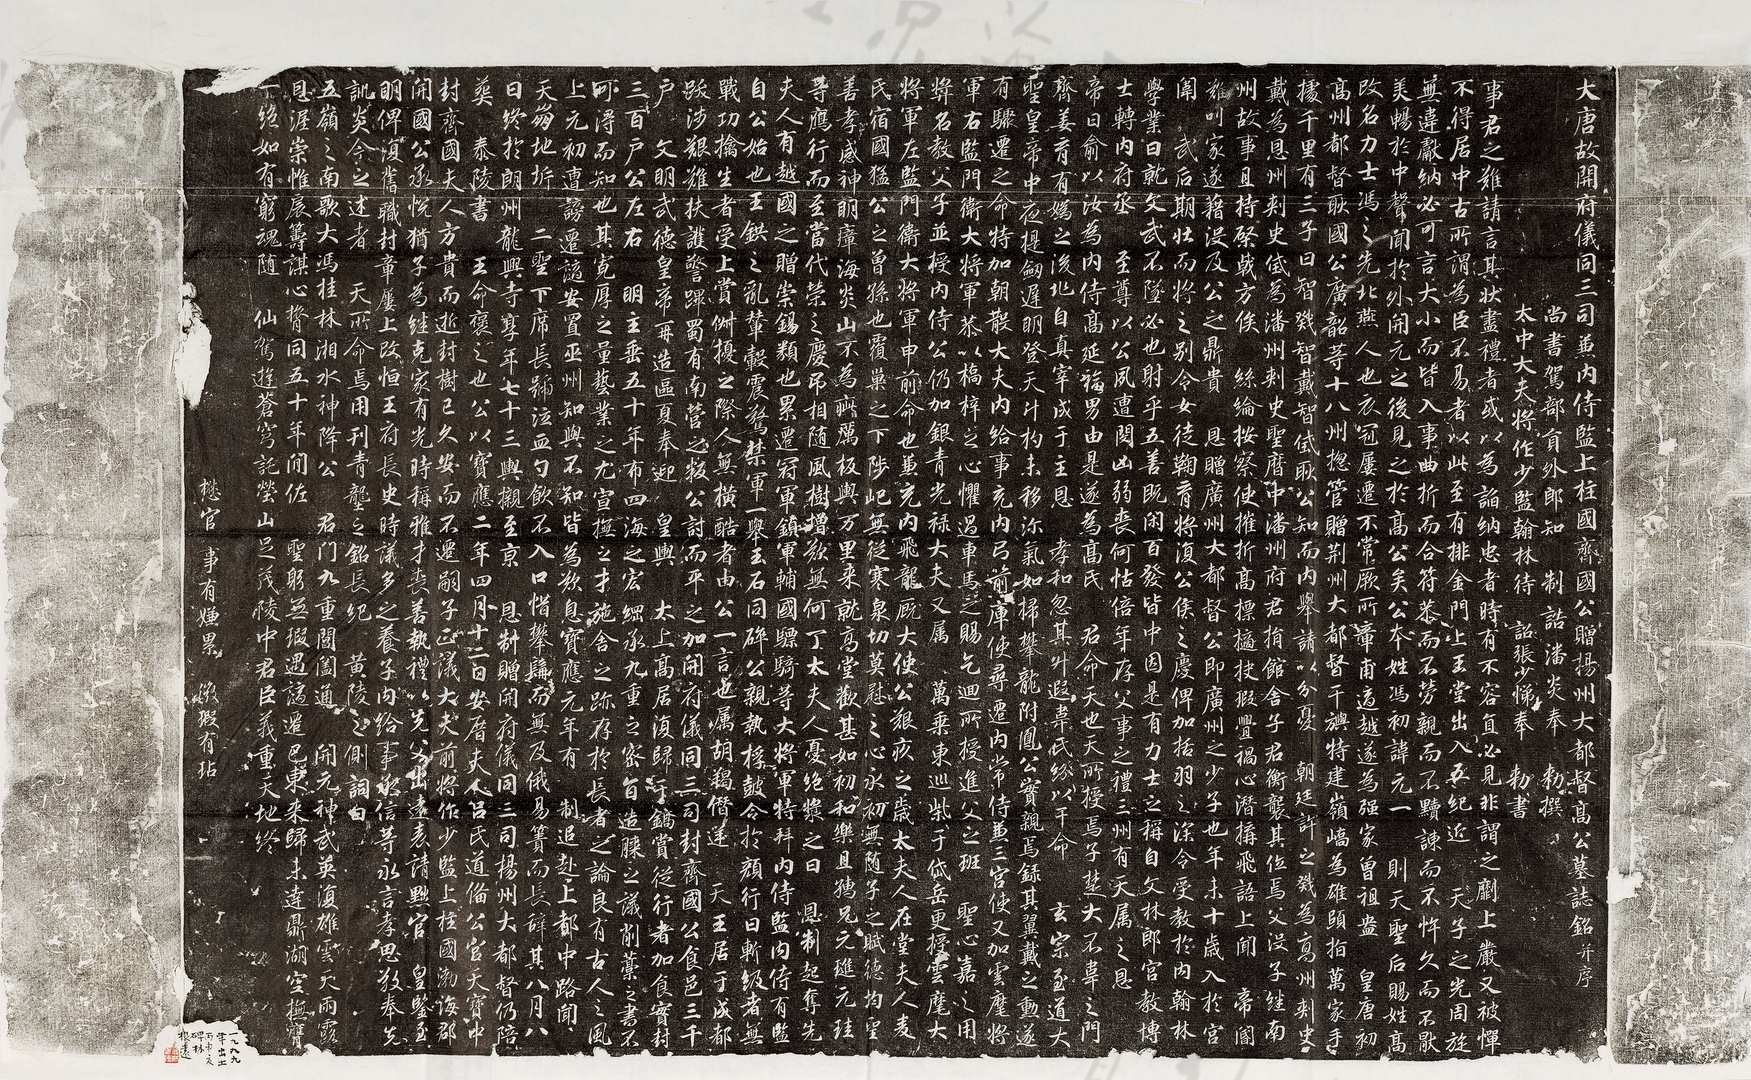 大唐故開府儀同三司兼內侍監上柱國齊國公贈揚州大都督高公墓誌銘并序
尚書駕部員外郎知　制誥潘炎奉　勑撰
太中大夫將作少監翰林待　詔張少悌奉　勑書
事君之難請言其狀盡禮者或以為諂納忠者時有不容直必見非謂之劘上嚴又被憚
不得居中古所謂為臣不易者以此至有排金門上玉堂出入五紀近　天子之光周旋
無違獻納必可言大小而皆入事曲折而合符恭而不勞親而不黷諫而不忤久而不厭
美暢於中聲聞於外開元之後見之於高公矣公本姓馮初諱元一　則天聖后賜姓高
改名力士馮之先北燕人也衣冠屢遷不常厥所章甫適越遂為強家曾祖盎　皇唐初
高州都督耿國公廣韶等十八州揔管贈荆州大都督干櫓特建嶺嶠為雄頤指萬家手
據千里有三子曰智戣智戴智㑗耿公知而內舉請以分憂　朝廷許之戣為高州刺史
戴為恩州刺史㑗為潘州刺史聖曆中潘州府君捐館舍子君衡襲其位焉父沒子継南
州故事且持棨戟方俟　絲綸按察使摧折高標擿抉瑕舋禍心潛搆飛語上聞　帝閽
難叫家遂藉沒及公之鼎貴　恩贈廣州大都督公即廣州之少子也年未十歲入於宮
闈　武后期壯而將之別令女徒鞠育將復公侯之慶俾加括羽之深令受教於內翰林
學業日就文武不墜必也射乎五善既閑百發皆中因是有力士之稱自文林郎宮教博
士轉內府丞　至尊以公夙遭閔凶弱喪何怙倍年存父事之禮三州有天属之恩
帝曰俞以汝為內侍高延福男由是遂為高氏　君命天也天所授焉子楚大不韋之門
齊姜育有嬀之後地自真宰成于主恩　孝和忽其升遐韋氏紛以干命　玄宗至道大
聖皇帝中夜提劒遲明登天斗杓未移沴氣如掃攀龍附鳳公實親焉錄其翼戴之勳遂
有驟遷之命特加朝散大夫內給事充內弓箭庫使尋遷內常侍兼三宮使又加雲麾將
軍右監門衛大將軍恭以橋梓之心懼過車馬之賜乞迴所授進父之班　聖心嘉之用
獎名教父子並授內侍公仍加銀青光祿大夫又属　萬乘東巡柴于岱岳更授雲麾大
將軍左監門衛大將軍申前命也兼充內飛龍厩大使公艱疚之歲太夫人在堂夫人麦
氏宿國猛公之曾孫也覆巢之下陟屺無從寒泉切莫慰之心永初無随子之賦德均聖
善孝感神明瘴海炎山不為疵癘板輿万里来就高堂歡甚如初和樂且孺兄元璡元珪
等應行而至當代榮之慶吊相随風樹增欷無何丁太夫人憂絕漿之日　恩制起奪先
夫人有越國之贈崇錫類也累遷冠軍鎮軍輔國驃騎等大將軍特拜內侍監內侍有監
自公始也王鉷之亂輦轂震驚禁軍一舉玉石同碎公親執桴鼓令於顏行曰斬級者無
戰功擒生者受上賞俶擾之際人無橫酷者由公一言也属胡羯僭逆　天王居于成都
跋涉艱難扶護警蹕蜀有南營之叛公討而平之加開府儀同三司封齊國公食邑三千
戶　文明武德皇帝再造區夏奉迎　皇輿　太上高居復歸于鎬賞從行者加食實封
三百户公左右　明主垂五十年布四海之宏綱承九重之密旨造膝之議削藁之書不
可得而知也其寬厚之量藝業之尤宣撫之才施舍之跡存於長者之論良有古人之風
上元初遭謗遷謫安置巫州知與不知皆為歎息寶應元年有　制追赴上都中路聞
天崩地坼　二聖下席長號泣血勺飲不入口惜攀髯而無及俄易簀而長辭其八月八
日終於朗州龍興寺享年七十三輿櫬至京　恩制贈開府儀同三司揚州大都督仍陪
葬　泰陵書　王命褒之也公以寶應二年四月十二日安厝夫人呂氏道倫公官天寶中
封齊國夫人方貴而逝封樹已久安而不遷嗣子正議大夫前將作少監上柱國渤海郡
開國公承悅猶子為継克家有光時稱雅才喪善執禮以先父出遠表請黜官　皇鑒至
明俾復舊職封章屢上改恒王府長史時議多之養子內給事承信等永言孝思敬奉先
訓炎今之述者　天所命焉用刊青壟之銘長紀　黃陵之側詞曰
五嶺之南歌大馮桂林湘水神降公　君門九重閶闔通　開元神武英復雄雲天雨露
恩渥崇帷扆籌謀心膂同五十年間佐　聖躬無瑕遇謫遷巴東来歸未達鼎湖空撫膺
一絕如有窮魂随　仙駕遊蒼穹託塋山足茂陵中君臣義重天地終
一九九九年出土